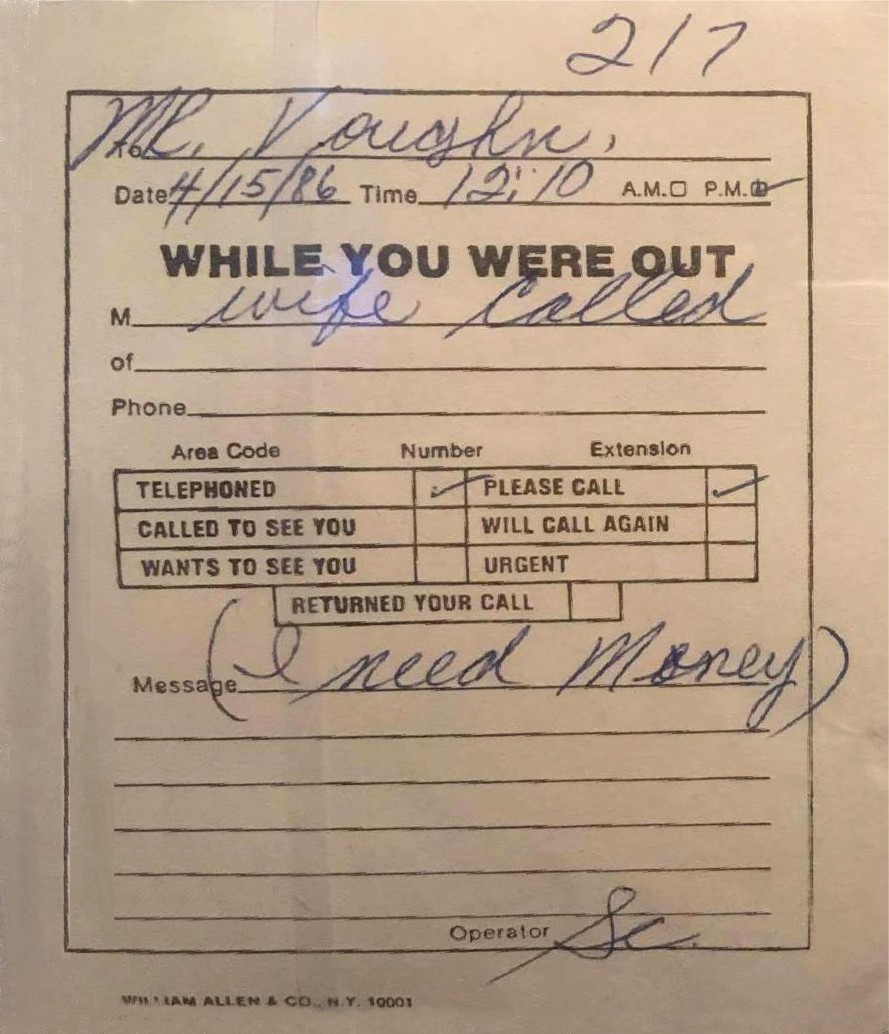 217
To Mr. Vaughn,
Date 4/15/86 Time 12:10 A.M. P.M.
WHILE YOU WERE OUT
M wife called
of
Phone
Area Code Number Extension
TELEPHONED PLEASE CALL
CALLED TO SEE YOU WILL CALL AGAIN
WANTS TO SEE YOU URGENT
RETURNED YOUR CALL
Message (I need Money)
Operator Sc.
WILLIAM ALLEN & CO., N.Y. 10001